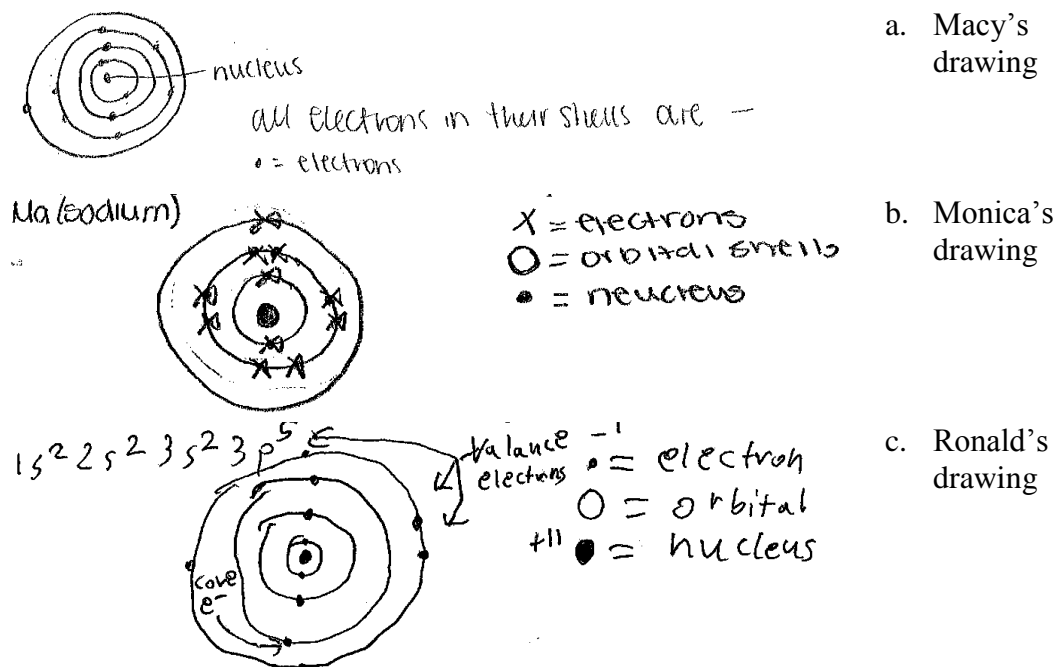 a. Macy's
drawing
nucleus
all electrons in their shells are −
• = electrons
Na (sodium)
X = electrons
O = orbital shells
• = neucreus
b. Monica's
drawing
1s² 2s² 3s² 3p⁵
valance
electrons
−1
• = electron
O = orbital
+11 • = nucleus
core
e−
c. Ronald's
drawing